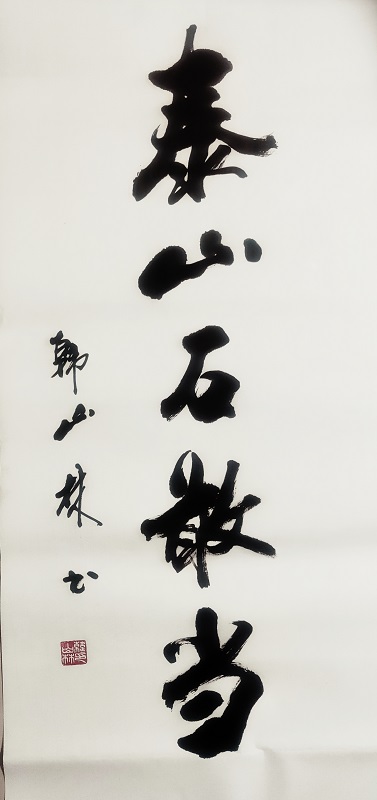 泰山石敢当
韩山林书